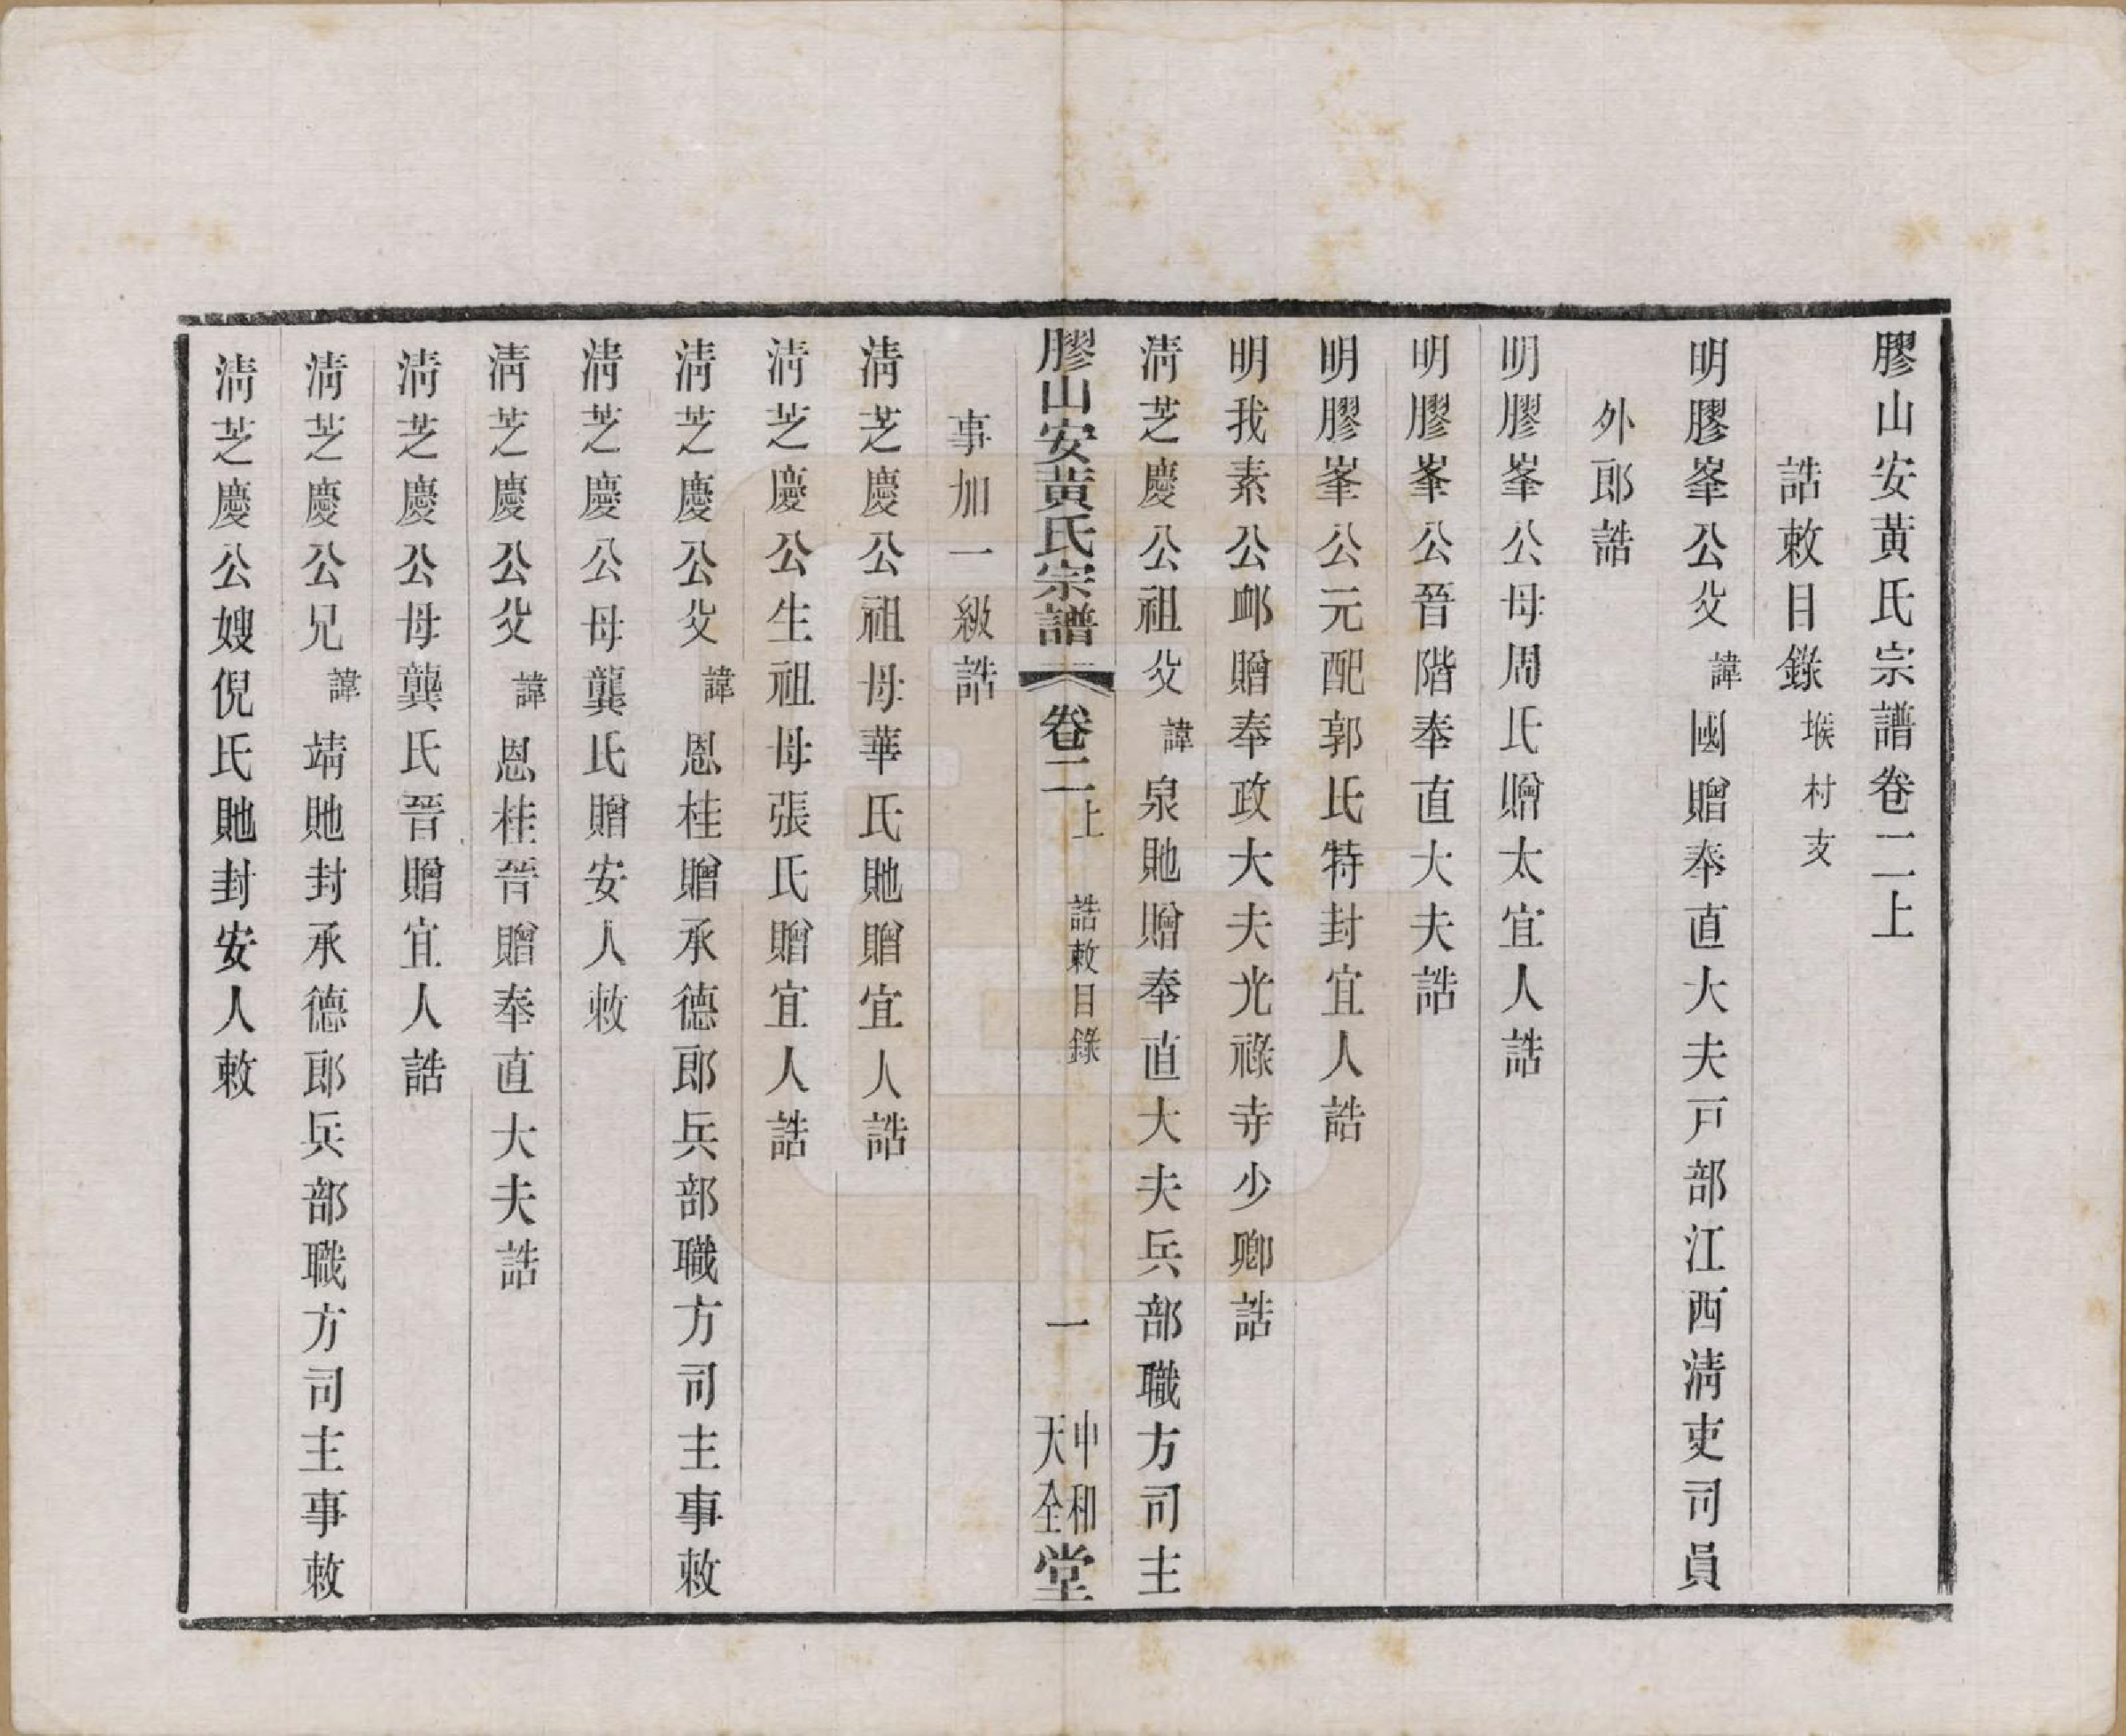 膠山安黃氏宗譜卷二上
誥敕目錄堠村支
明膠峯公父諱國贈奉直大夫戶部江西淸吏司員
外郎誥
明膠峯公母周氏贈太宜人誥
明膠峯公晉階奉直大夫誥
明膠峯公元配郭氏特封宜人誥
明我素公卹贈奉政大夫光祿寺少卿誥
淸芝慶公祖父諱泉貤贈奉直大夫兵部職方司主
膠山安黃氏宗譜 卷二上 誥敕目錄 一 中和天全堂
事加一級誥
淸芝慶公祖母華氏貤贈宜人誥
淸芝慶公生祖母張氏贈宜人誥
淸芝慶公父諱恩桂贈承德郎兵部職方司主事敕
淸芝慶公母龔氏贈安人敕
淸芝慶公父諱恩桂晉贈奉直大夫誥
淸芝慶公母龔氏晉贈宜人誥
淸芝慶公兄諱靖貤封承德郎兵部職方司主事敕
淸芝慶公嫂倪氏貤封安人敕